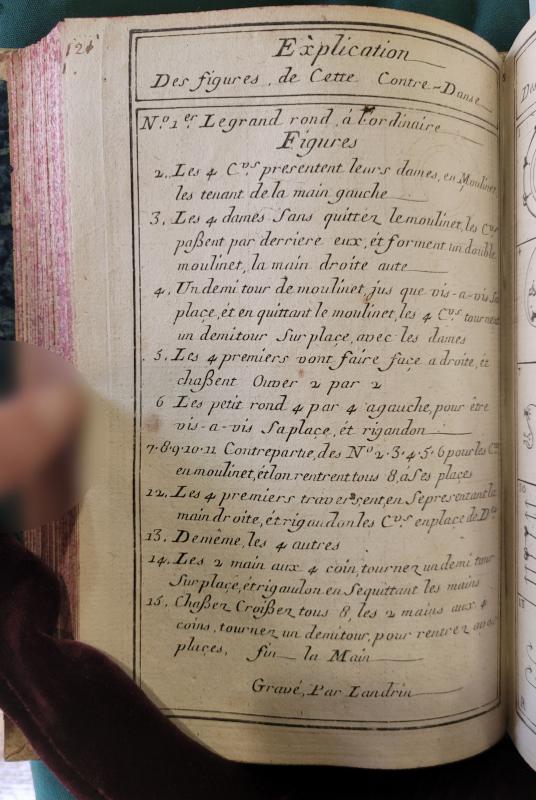 121
Explication
Des figures, de Cette Contre-Danse
N.º 1.er Le grand rond, á l'ordinaire
Figures
2. Les 4 C.vs presentent leurs dames, en Moulinet,
les tenant de la main gauche
3. Les 4 dames Sans quittéz le moulinet, les C.vs
paßent par derriere eux, ét forment un double
moulinet, la main droite aute
4. Un demi tour de moulinet, jus que vis-a-vis Sa
plaçe, ét en quittant le moulinet, les 4 C.vs tournent
un demitour Sur plaçe, avec les dames
5. Les 4 premiers vont faire façe a droite, ét
chaßent Ouver 2 par 2
6 Les petit rond 4 par 4 agauche, pour être
vis-a-vis Sa plaçe, ét rigandon
7.8.9.10.11 Contrepartie, des Nº 2.3.4.5.6 pour les C.vs
en moulinet, ét lon rentrent tous 8, á Ses plaçes
12. Les 4 premiers traversent, en Sepresentant la
main droite, ét rigaudon les C.vs en plaçe de D.es
13. De même, les 4 autres
14. Les 2 main aux 4 coin, tournez un demi tour
Sur plaçe, ét rigaudon en Sequittant les mains
15. Chaßez Croißez tous 8, les 2 mains aux 4
coins, tournez un demitour, pour rentrez
plaçes, fin la Main
Gravé, Par Landrin